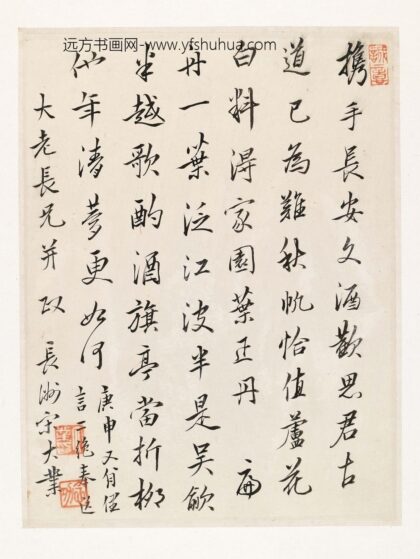 远方书画网-www.yfshuhua.com
攜手長安文酒歡思君古
道已為難秋帆恰值蘆花
白料得家園葉正丹 扁
舟一葉泛江波半是吳歈
半越歌酌酒旗亭當折柳
他年清夢更如何
庚申又月偶
言二絕奉送
大老長兄并政 長洲宋大業